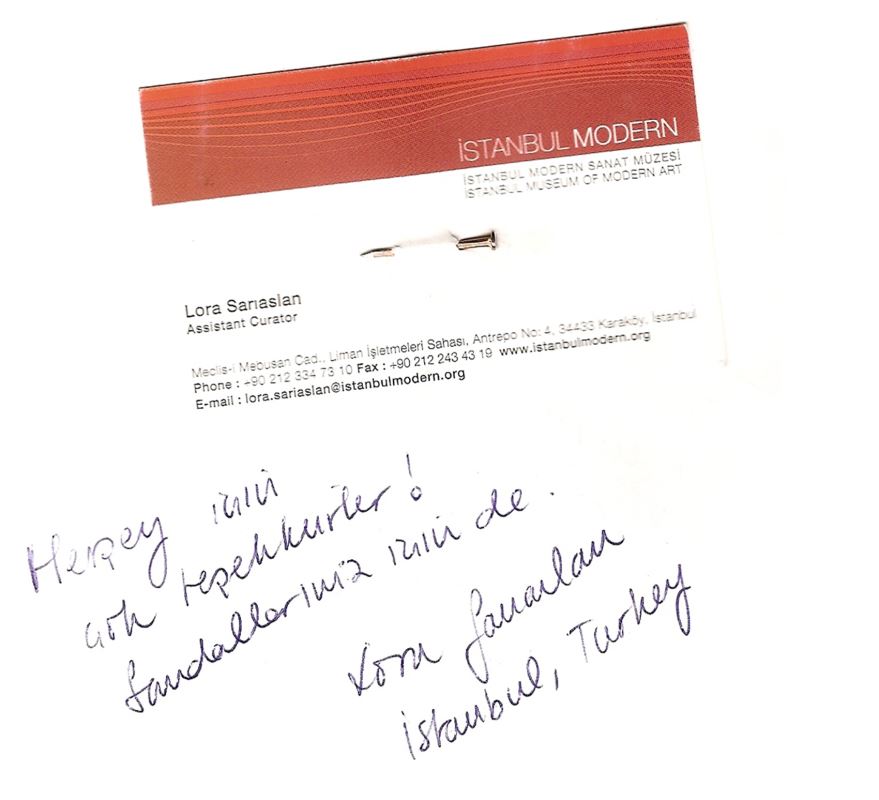 İSTANBUL MODERN
İSTANBUL MODERN SANAT MÜZESİ
İSTANBUL MUSEUM OF MODERN ART
Lora Sarıaslan
Assistant Curator
Meclis-i Mebusan Cad., Liman İşletmeleri Sahası, Antrepo No: 4, 34433 Karaköy, İstanbul
Phone : +90 212 334 73 10 Fax : +90 212 243 43 19 www.istanbulmodern.org
E-mail : lora.sariaslan@istanbulmodern.org
Herşey için
çok teşekkürler!
Sandallarınız için de.
Lora Sarıaslan
İstanbul, Turkey